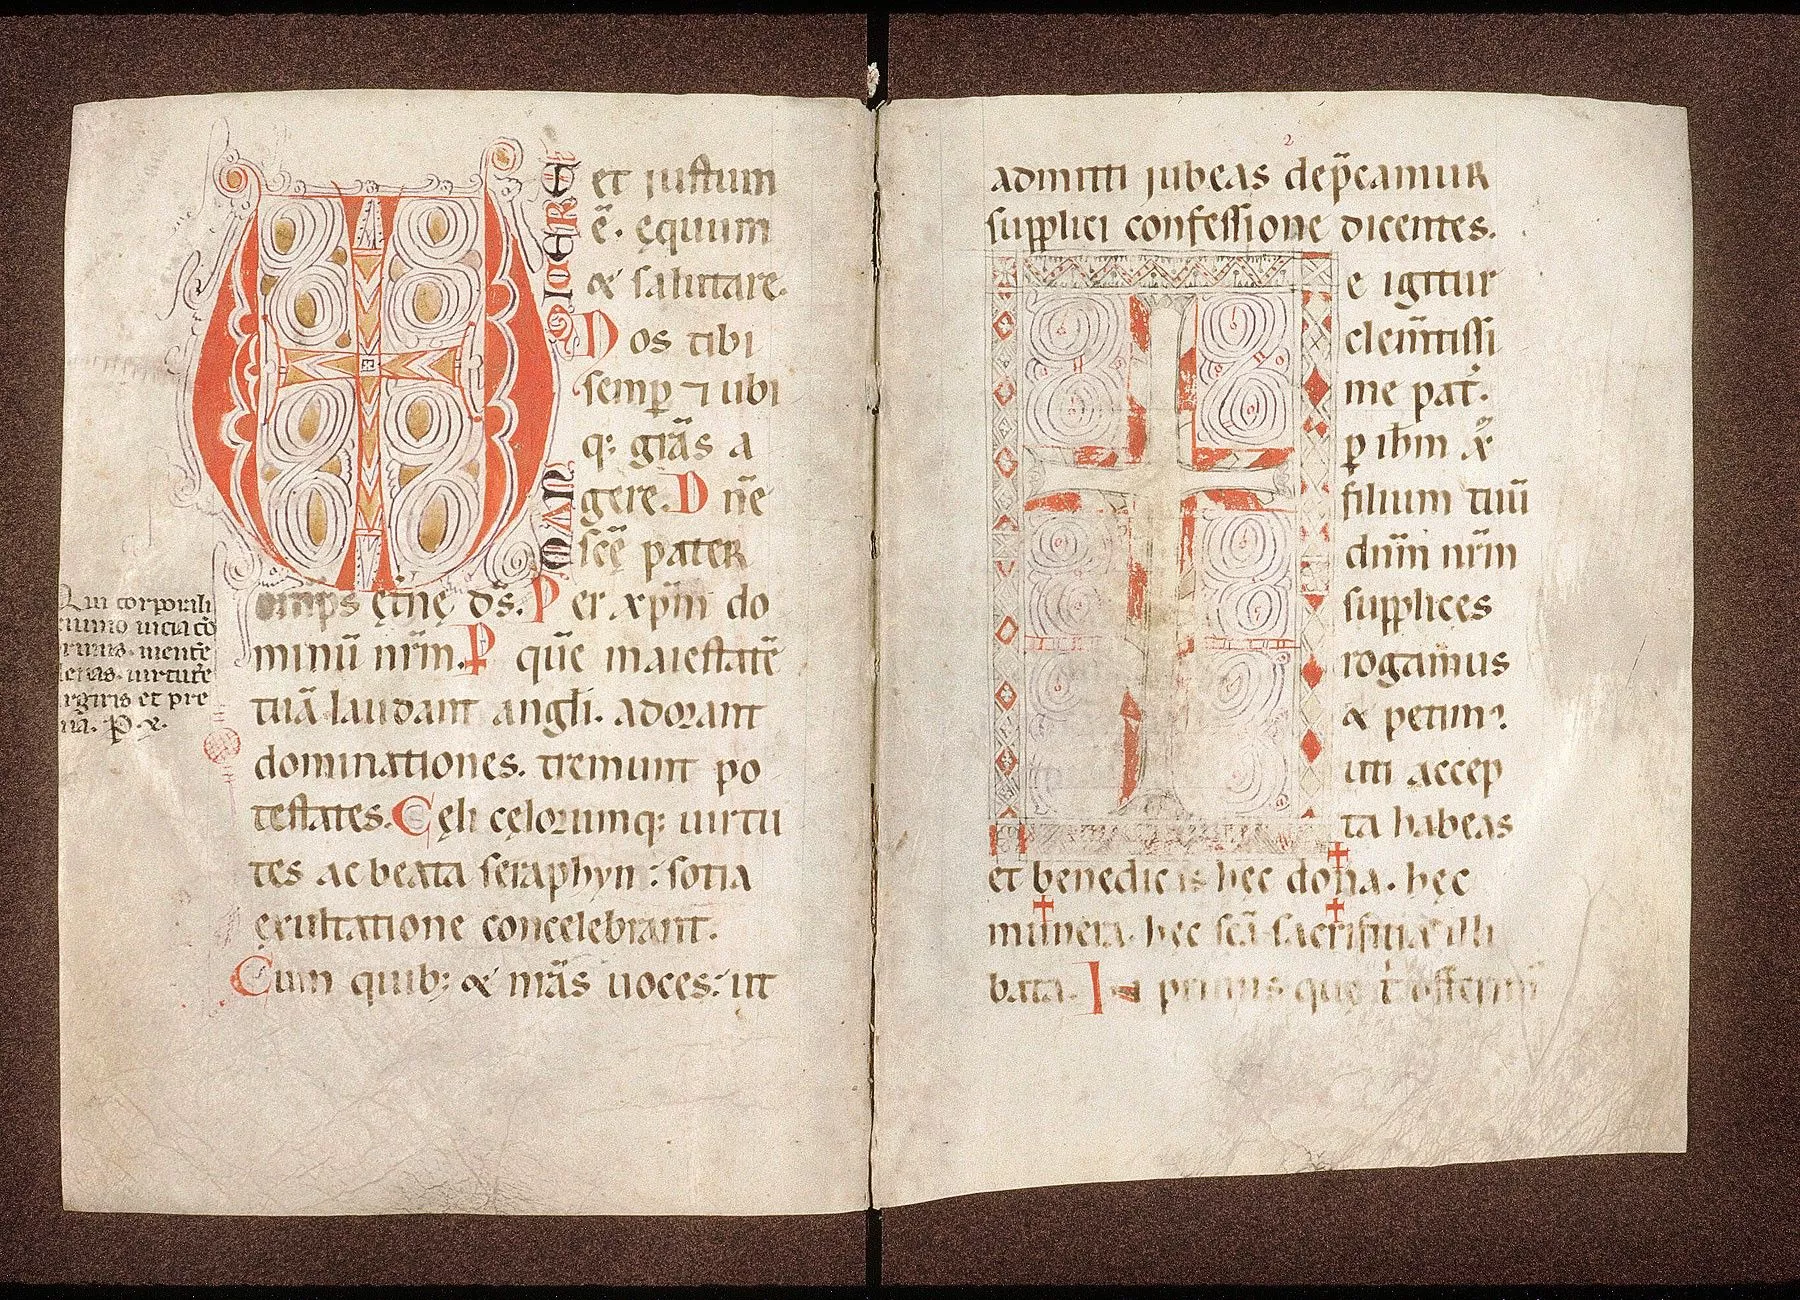 et justum
ē. ęquum
& salutare.
Nos tibi
semp̲ ⁊ ubi
q: gr̄as a
gere. D n̄e
sc̄ę pater
omp̄s ęt̄nę d̄s. P er xp̄m do
minū nr̄m. P quē maiestatē
tuā laudant angl̄i. adorant
dominationes. tremunt po
testates. Cęli cęlorumq: uirtu
tes ac beata seraphyn: sotia
exultatione concelebrant.
Cum quib; & nr̄as uoces: ut
Qui corporali
ieiunio uicia cō
primis. mentē
eleuas. uirtutē
largiris et pre
mia. P. x.
2
admitti jubeas dep̄camur
supplici confessione dicentes.
e igitur
clem̄tissi
me pat̓.
p̲ ih̄m xp̄
filium tuū
dn̄m nr̄m
supplices
rogamus
& petim᷒.
uti accep
ta habeas
et benedicas hęc dona. hęc
munera. hęc sc̄a sacrificia illi
bata. In primis quę t̓ offerim᷒